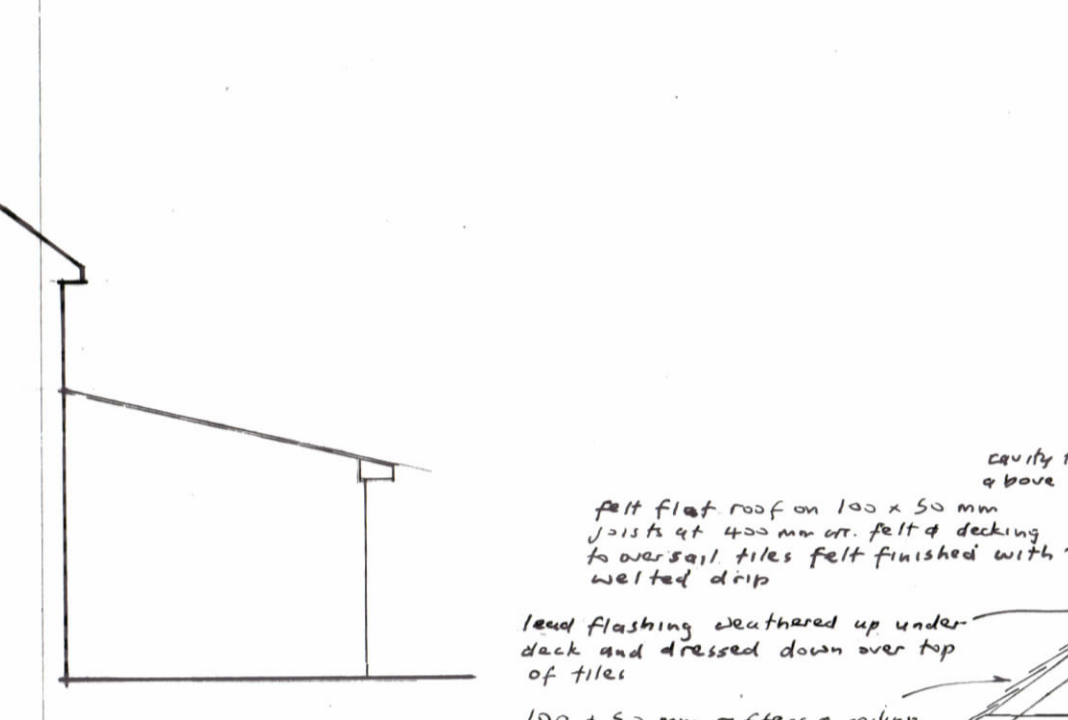 cavity
above
felt flat roof on 100 x 50 mm
joists at 400 mm crs. felt & decking
to oversail tiles felt finished with
welted drip
lead flashing weathered up under
deck and dressed down over top
of tiles
100 x 50 mm